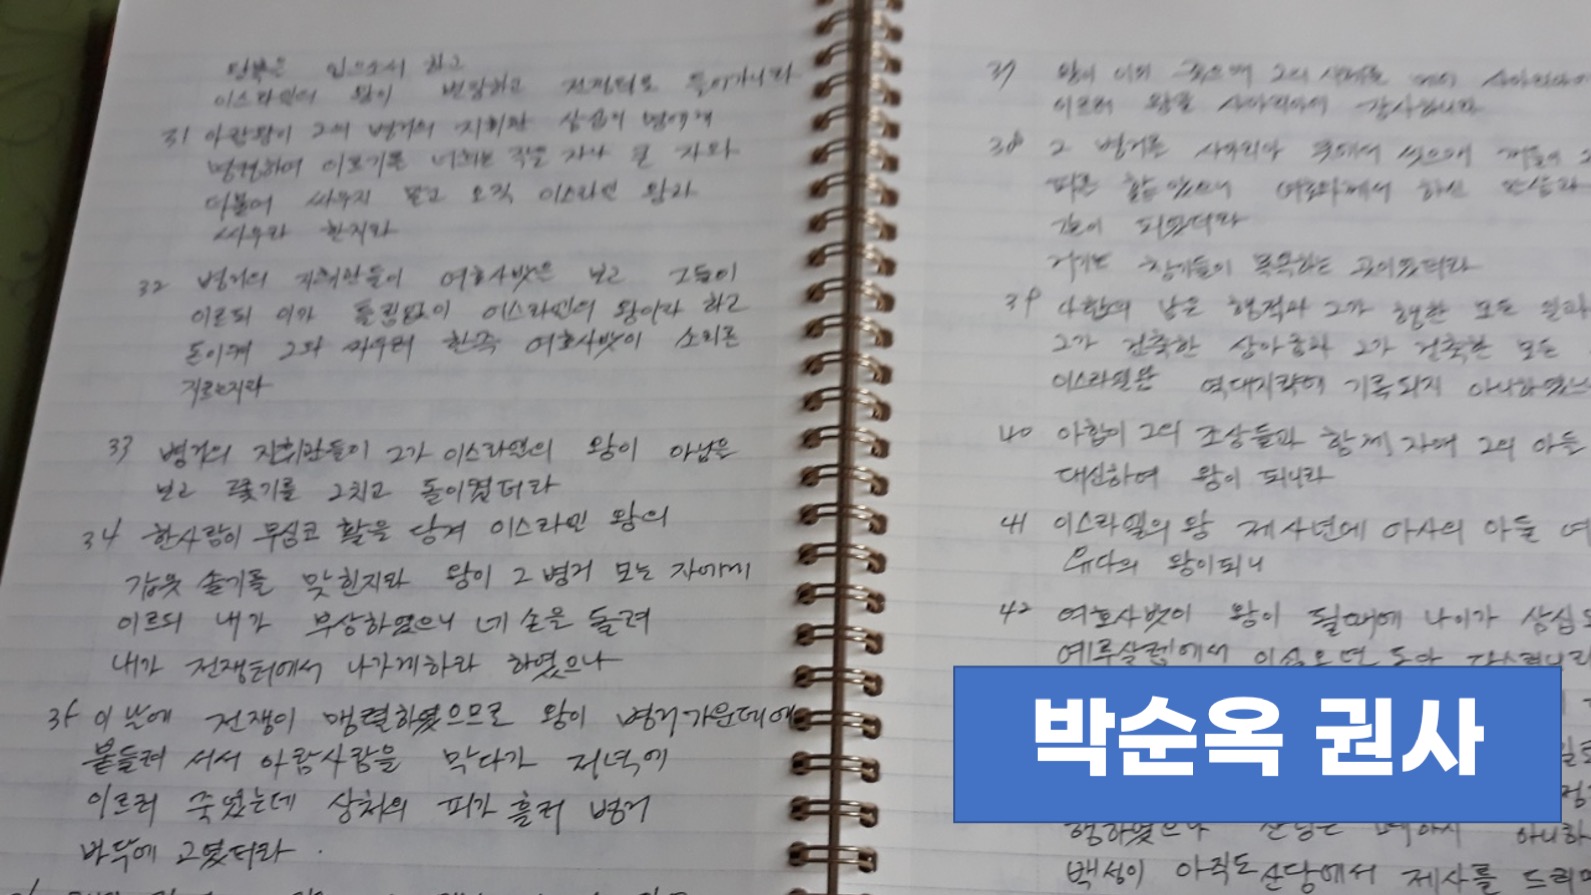 왕복은 입으소서 하고
이스라엘의 왕이 변장하고 전쟁터로 들어가니라
31 아람왕이 그의 병거의 지휘관 삼십이 명에게
명령하여 이르기를 너희는 작은 자나 큰 자와
더불어 싸우지 말고 오직 이스라엘 왕과
싸우라 한지라
32 병거의 지휘관들이 여호사밧은 보고 그들이
이르되 이가 틀림없이 이스라엘의 왕이라 하고
돌이켜 그와 싸우려 한즉 여호사밧이 소리를
지르는지라
33 병거의 지휘관들이 그가 이스라엘의 왕이 아님은
보고 쫓기를 그치고 돌이켰더라
34 한사람이 무심코 활을 당겨 이스라엘 왕의
갑옷 솔기를 맞힌지라 왕이 그 병거 모는 자에게
이르되 내가 부상하였으니 네 손을 돌려
내가 전쟁터에서 나가게하라 하였으나
35 이 날에 전쟁이 맹렬하였으므로 왕이 병거가운데에
붙들려 서서 아람사람을 막다가 저녁에
이르러 죽었는데 상처의 피가 흘러 병거
바닥에 고였더라.
37 왕이 이미 죽으매 그의 시체를 메어 사마리아에
이르러 왕을 사마리아에 장사하니라
38 그 병거를 사마리아 못에서 씻으매 개들이
피를 핥았으니 여호와께서 하신 말씀과
같이 되었더라
거기는 창기들이 목욕하는 곳이었더라
39 아합의 남은 행적과 그가 행한 모든 일과
그가 건축한 상아궁과 그가 건축한 모든
이스라엘왕 역대지략에 기록되지 아니하였느
40 아합이 그의 조상들과 함께 자매 그의 아들
대신하여 왕이 되니라
41 이스라엘의 왕 제 사년에 아사의 아들 여
유다의 왕이되니
42 여호사밧이 왕이 될때에 나이가 삼십
예루살렘에서 이십오년 동안 다스리니라
박순옥 권사
행하였으나 산당은 폐하지 아니하
백성이 아직도 산당에서 제사를 드리며